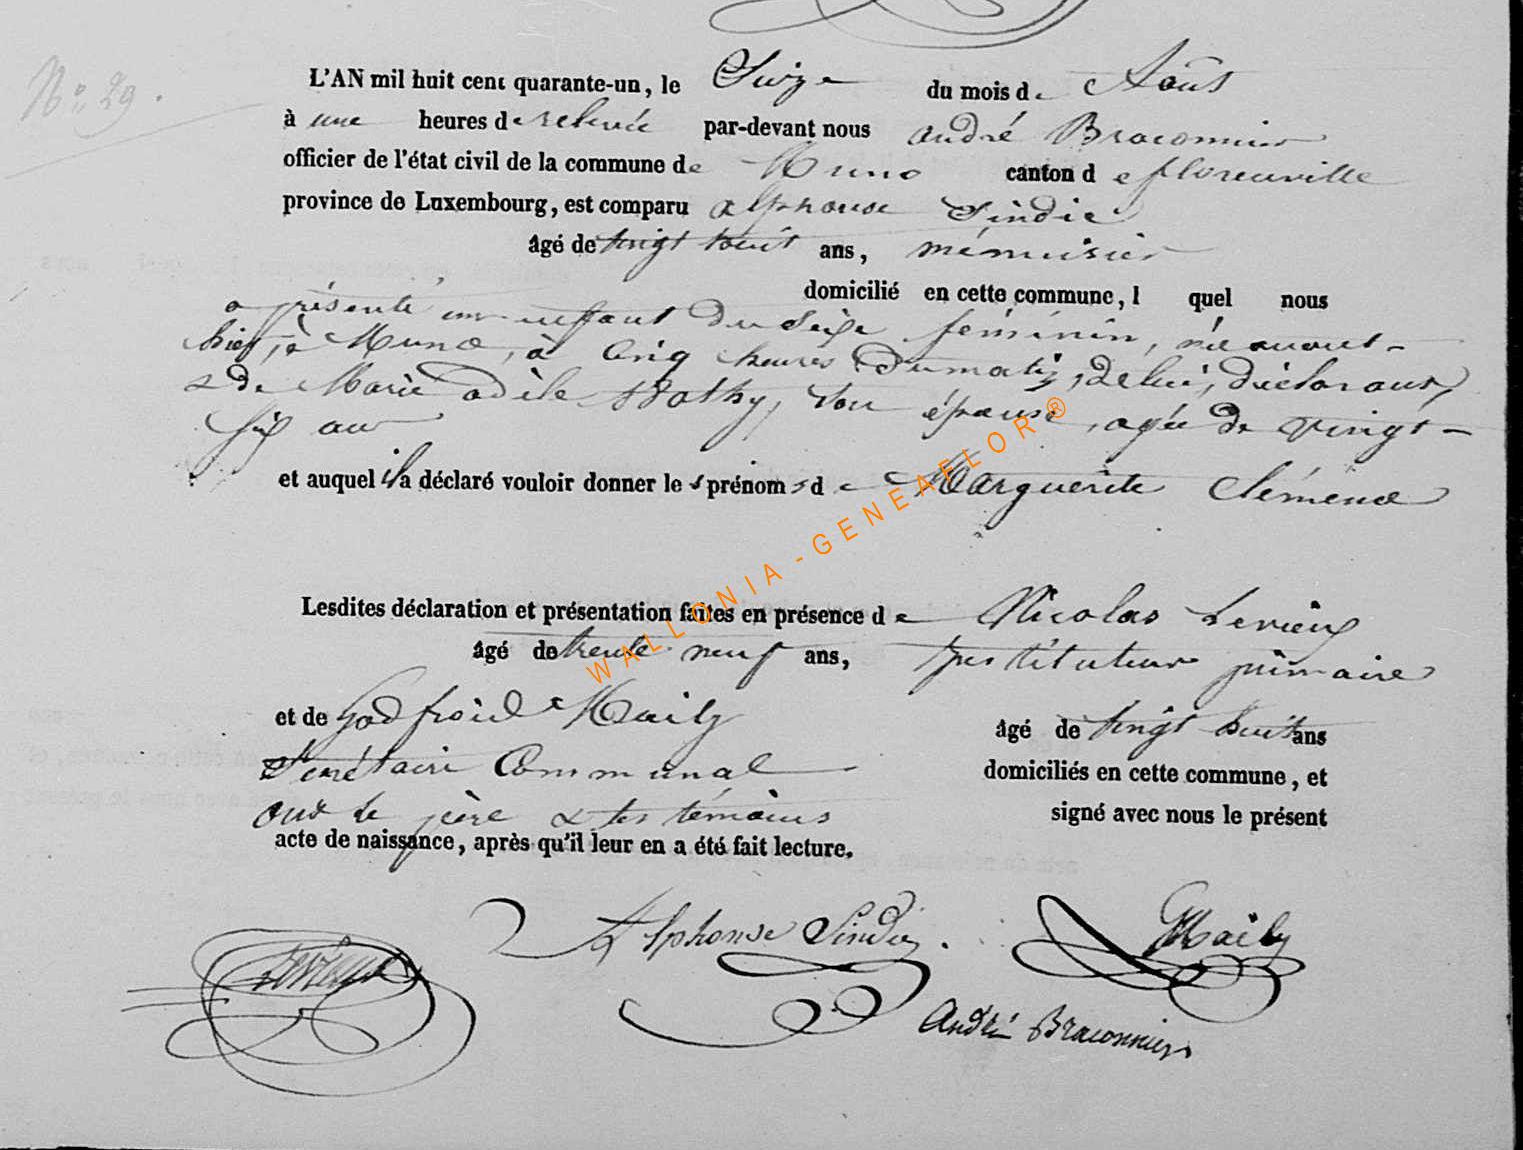 N° 29.
L'AN mil huit cent quarante-un, le Seize du mois de Août
à une heures de relevée par-devant nous andré Braconnier
officier de l'état civil de la commune de Muno canton de florenville
province de Luxembourg, est comparu alphonse Sindic
âgé de vingt huit ans,ménuisier
domicilié en cette commune, l quel nous
a présenté un enfant du Seixe féminin, née avant-
hier, à Muno, à Cinq heures du matin, de lui, déclarant,
& de Marie adèle Bothy, Son épouse, agée de vingt-
six ans
et auquel il a déclaré vouloir donner les prénoms de Marguerite Clémence
Lesdites déclaration et présentation faites en présence de Nicolas
âgé de trente neuf ans, Instituteur primaire
et de Godfroid Maily âgé de vingt huit ans
Secrétaire Communal domiciliés en cette commune, et
ont le père & les témoins signé avec nous le présent
acte de naissance, après qu'il leur en a été fait lecture.
Alphonse Sindic. GMaily
André Braconnier
WALLONIA - GENEAFLOR ®